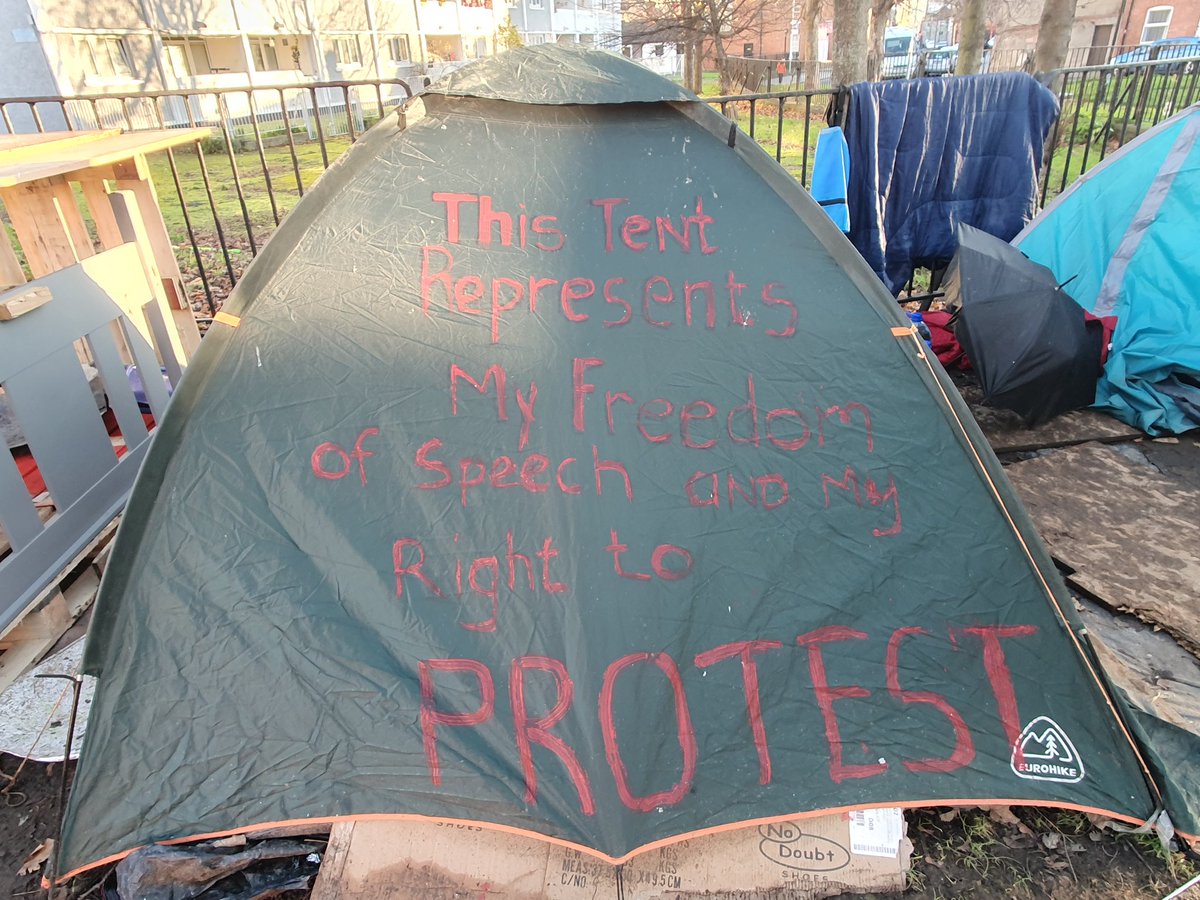 This Tent
Represents
My Freedom
of speech and My
Right to
PROTEST
EUROHIKE
SHOES
No
Doubt
SHOES
KGS
KGS
C/NO